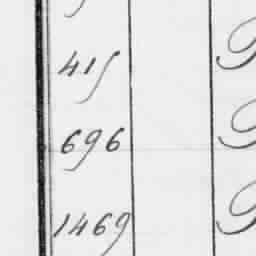 415
696
1469